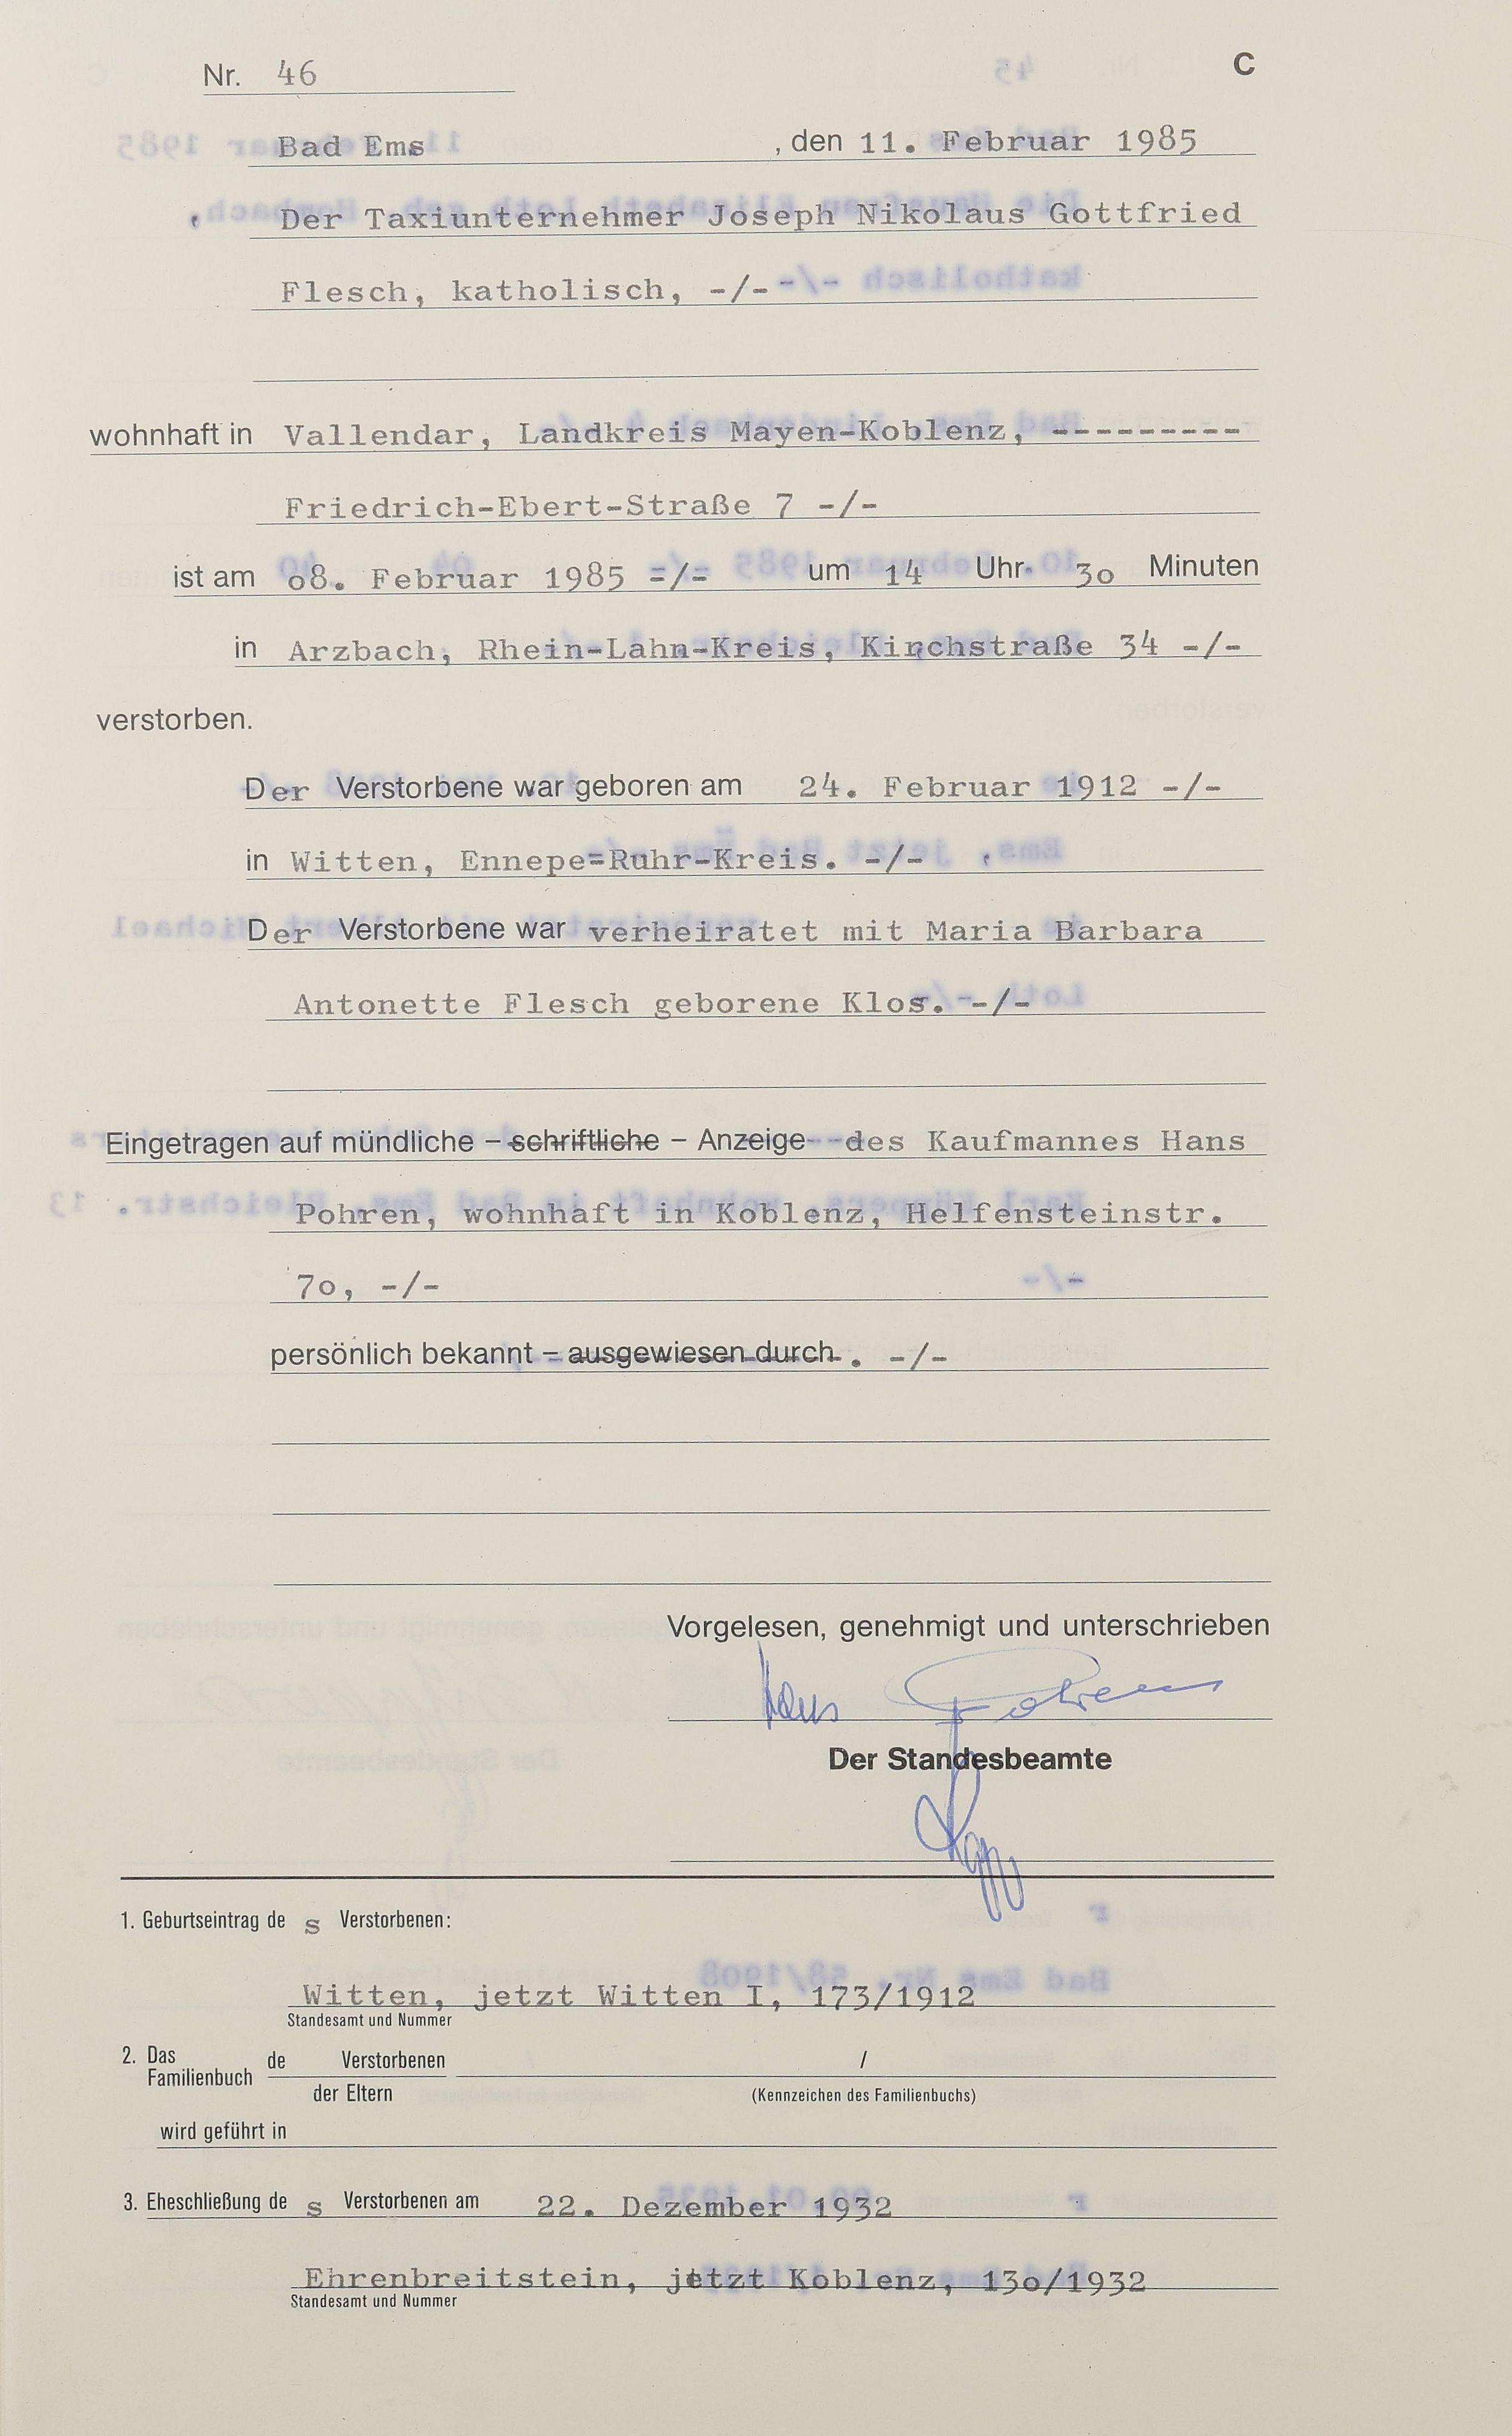 Nr. 46
C
Bad Ems, den 11. Februar 1985
Der Taxiunternehmer Joseph Nikolaus Gottfried
Flesch, katholisch, -/-
wohnhaft in Vallendar, Landkreis Mayen-Koblenz, ---------
Friedrich-Ebert-Straße 7 -/-
ist am o8. Februar 1985 =/= um 14 Uhr 3o Minuten
in Arzbach, Rhein-Lahn-Kreis, Kirchstraße 34 -/-
verstorben.
Der Verstorbene war geboren am 24. Februar 1912 -/-
in Witten, Ennepe=Ruhr-Kreis. -/-
Der Verstorbene war verheiratet mit Maria Barbara
Antonette Flesch geborene Klos. -/-
Eingetragen auf mündliche – schriftliche – Anzeige --des Kaufmannes Hans
Pohren, wohnhaft in Koblenz, Helfensteinstr.
7o, -/-
persönlich bekannt – ausgewiesen durch . -/-
Vorgelesen, genehmigt und unterschrieben
Hans Pohren
Der Standesbeamte
1. Geburtseintrag de s Verstorbenen:
Witten, jetzt Witten I, 173/1912
Standesamt und Nummer
2. Das Familienbuch de Verstorbenen /
der Eltern (Kennzeichen des Familienbuchs)
wird geführt in
3. Eheschließung de s Verstorbenen am 22. Dezember 1932
Ehrenbreitstein, jetzt Koblenz, 13o/1932
Standesamt und Nummer